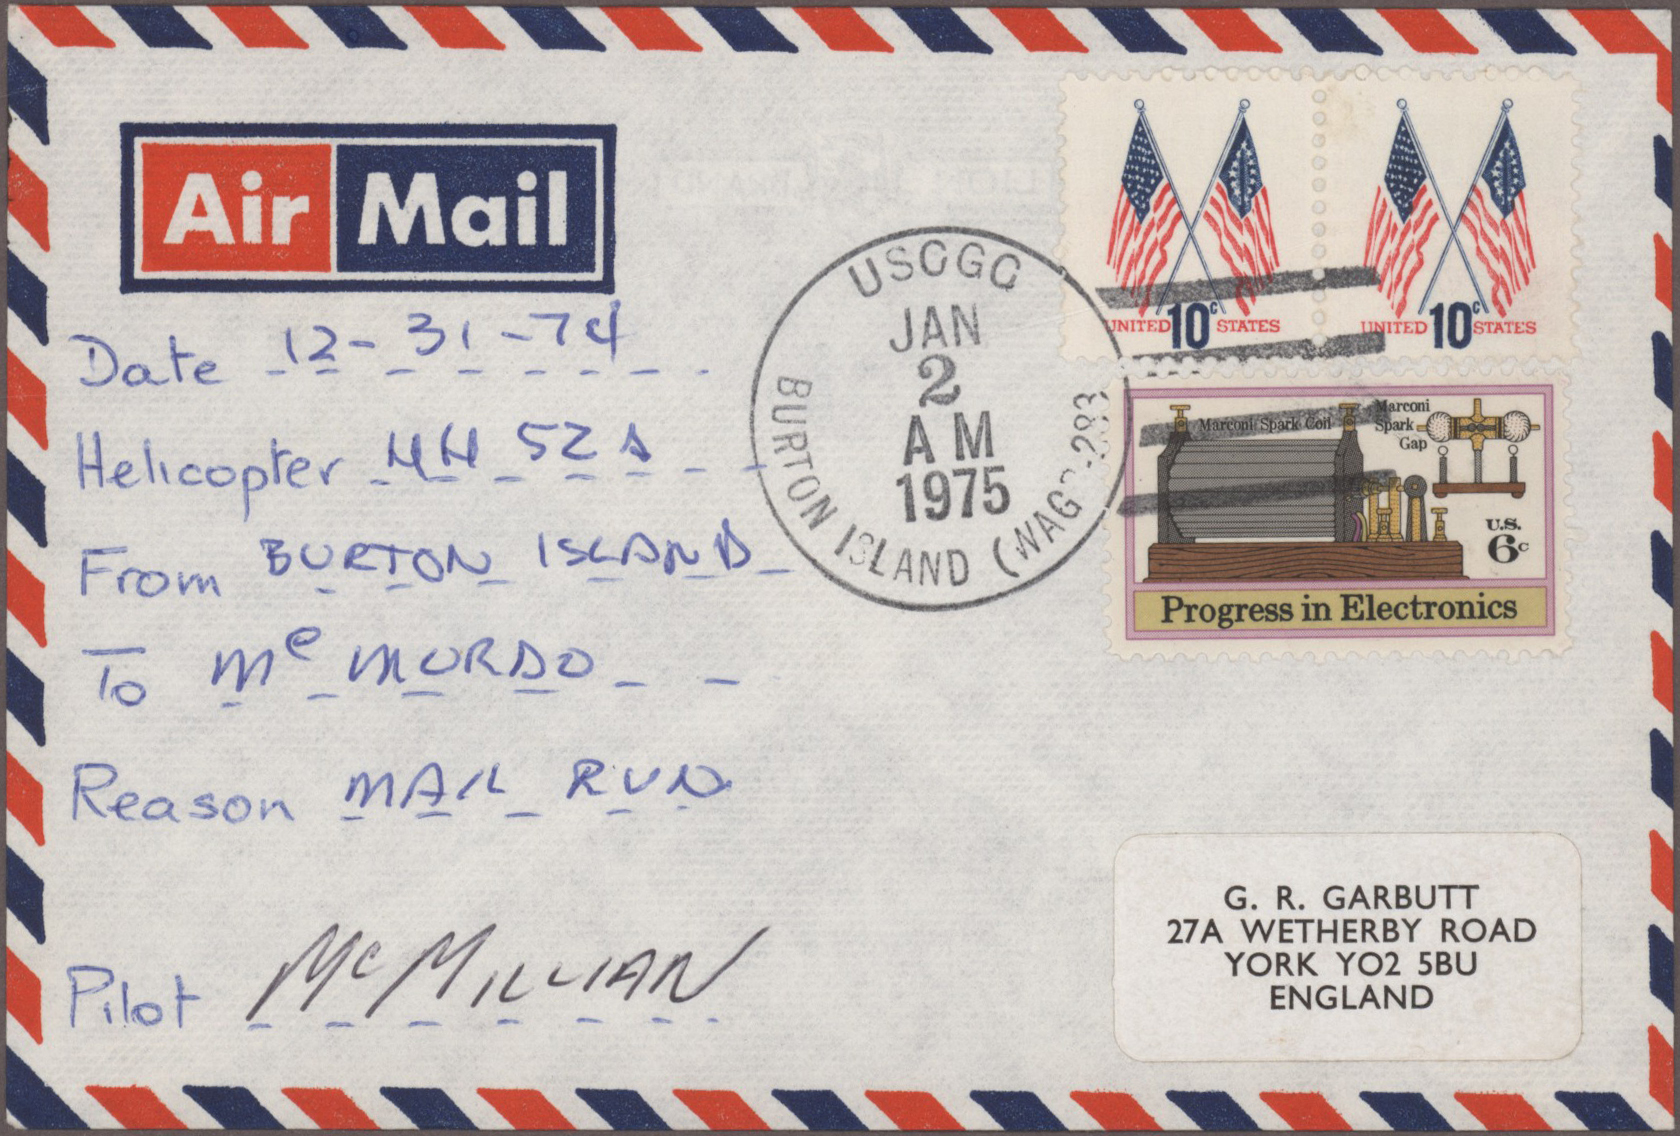 Air Mail
Date 12-31-74
Helicopter HH 52 A
From BURTON ISLAND
To Mc MURDO
Reason MAIL RUN
Pilot McMILLIAN
USCGC
JAN
2
AM
1975
BURTON ISLAND (WAGB-283
UNITED 10c STATES
UNITED 10c STATES
Marconi Spark Coil
Marconi
Spark
Gap
U.S.
6c
Progress in Electronics
G. R. GARBUTT
27A WETHERBY ROAD
YORK YO2 5BU
ENGLAND